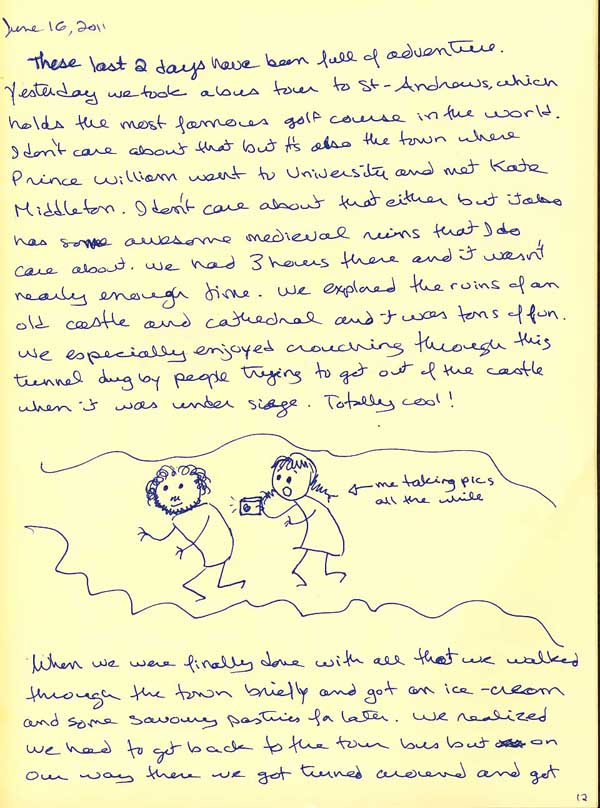 June 16, 2011
These last 2 days have been full of adventure.
Yesterday we took a bus tour to St-Andrews, which
holds the most famous golf course in the world.
I don't care about that but it's also the town where
Prince William went to University and met Kate
Middleton. I don't care about that either but it also
has some awesome medieval ruins that I do
care about. We had 3 hours there and it wasn't
nearly enough time. We explored the ruins of an
old castle and cathedral and it was tons of fun.
We especially enjoyed crouching through this
tunnel dug by people trying to get out of the castle
when it was under siege. Totally cool!
me taking pics
all the wile
When we were finally done with all that we walked
through the town briefly and got an ice-cream
and some savoury pastries for later. We realized
we had to get back to the tour bus but on
our way there we got turned around and got
12